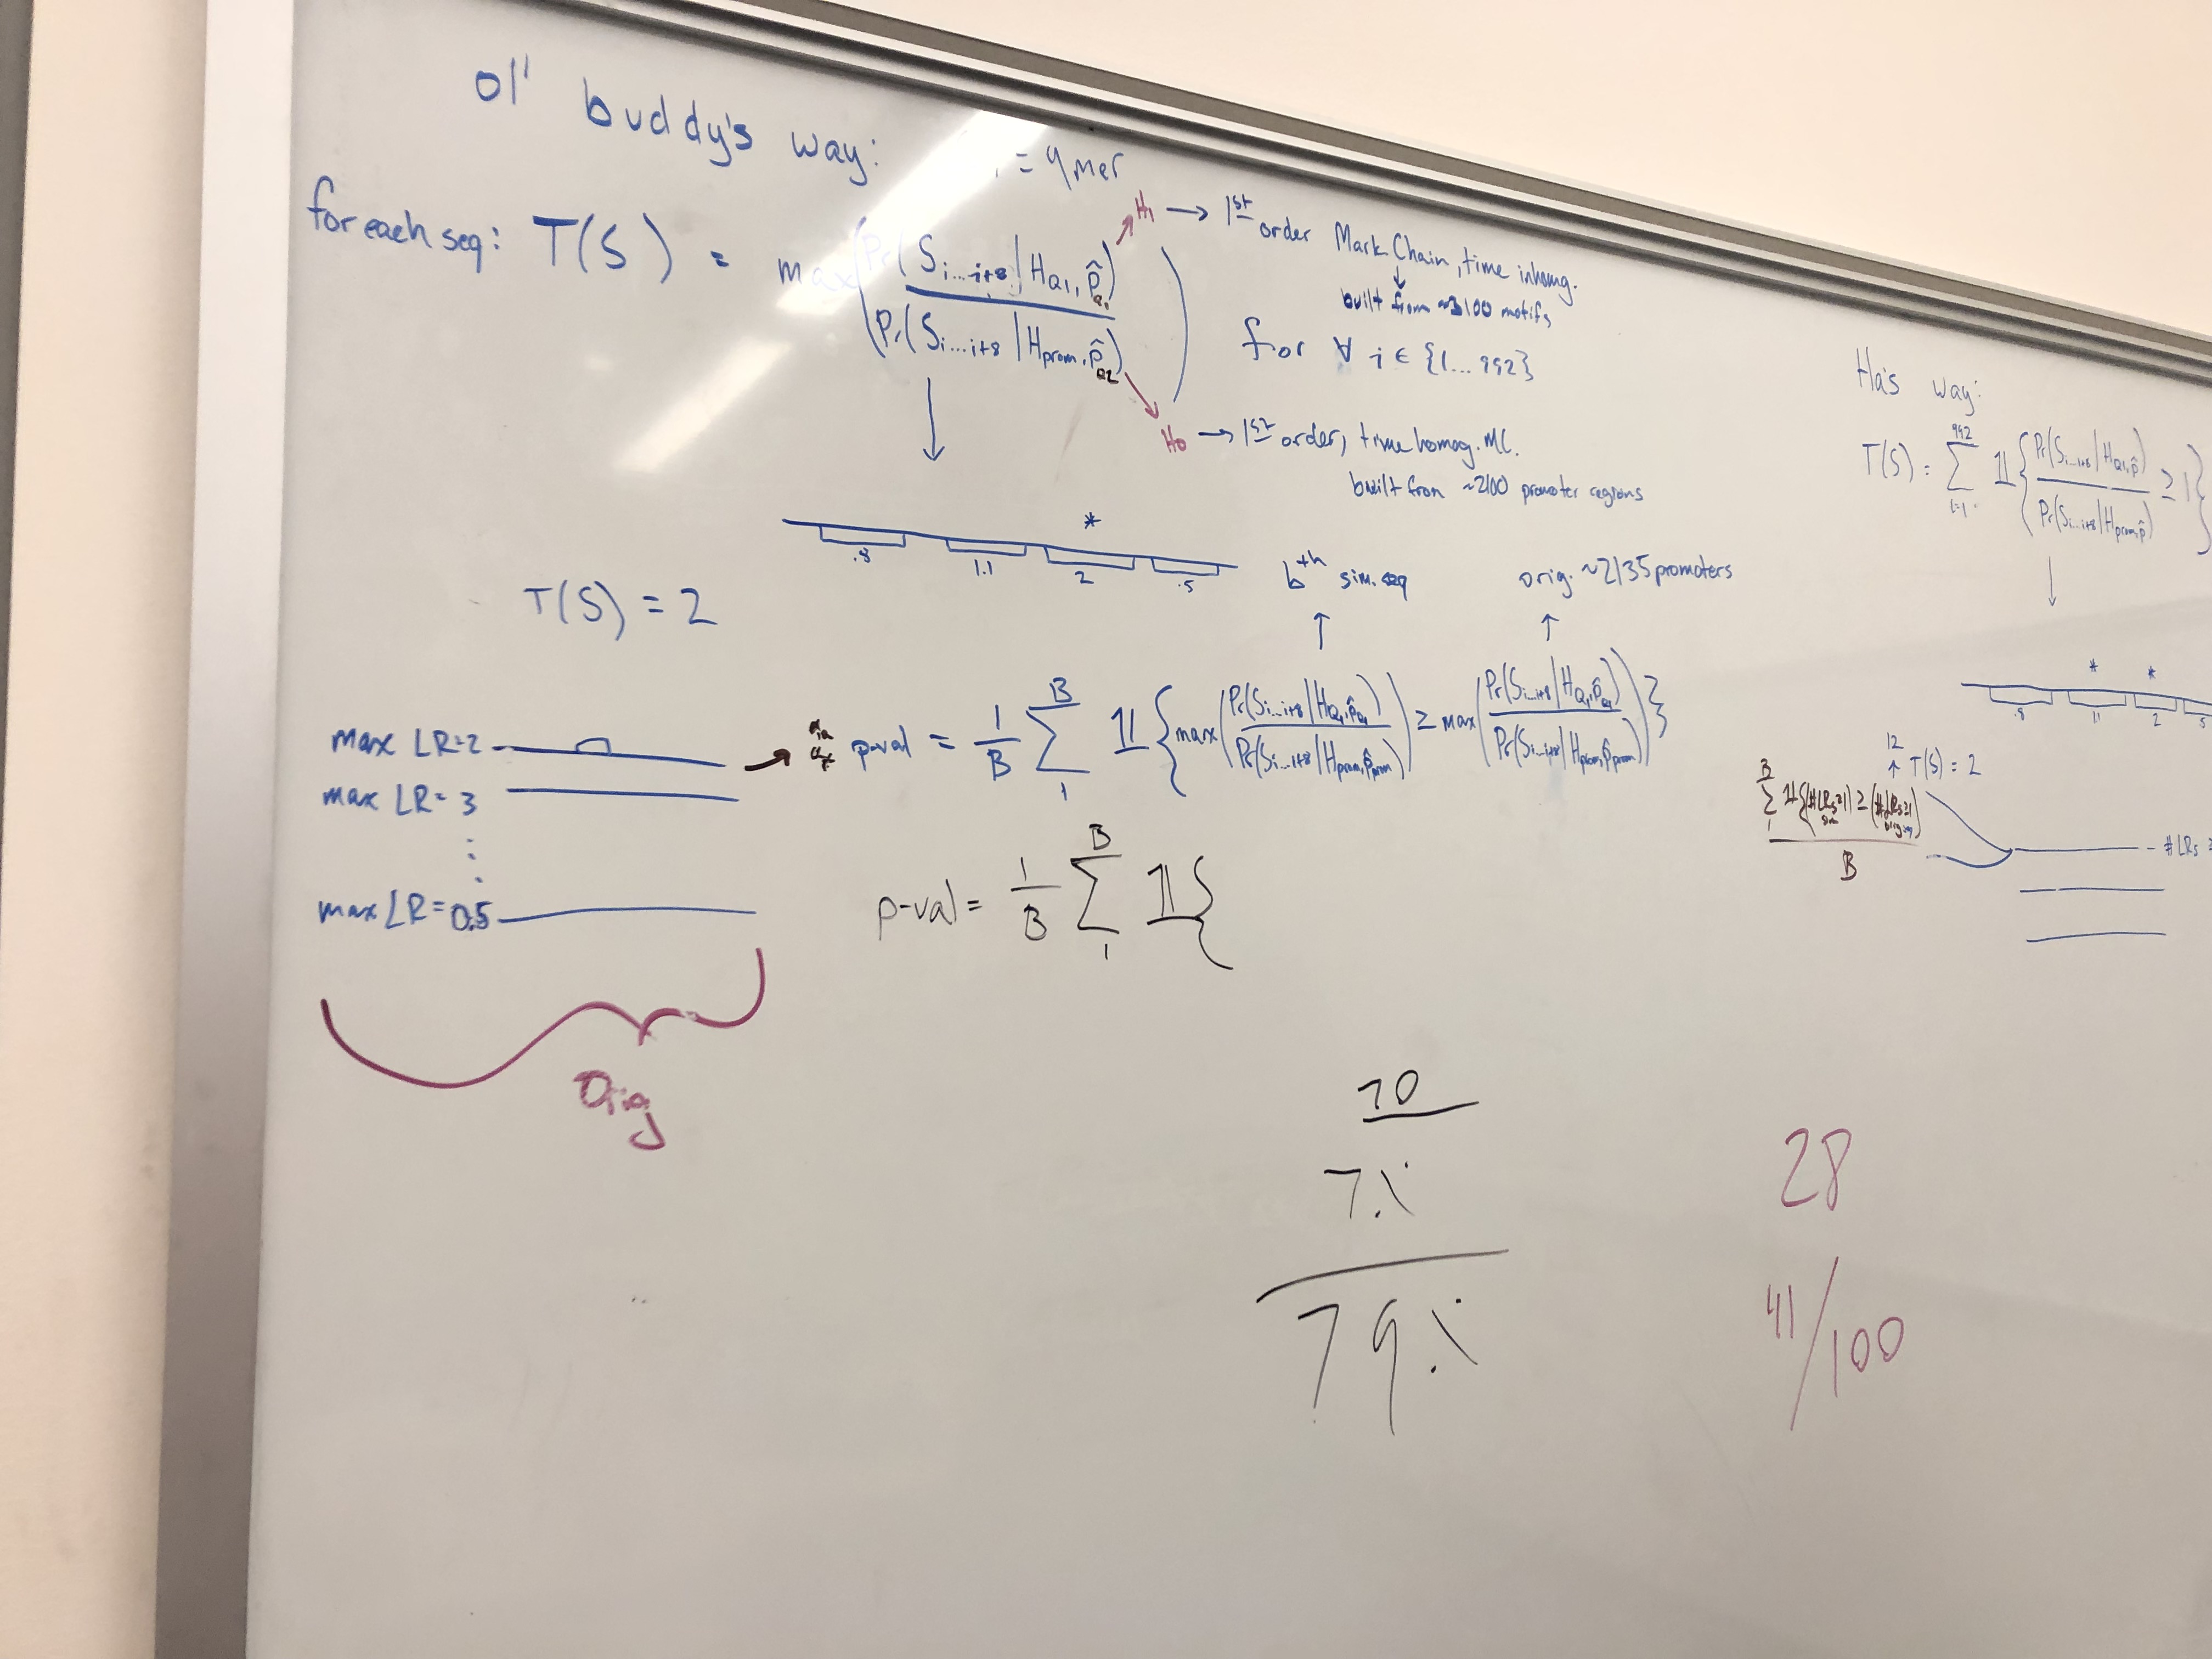 ol' buddy's way:
= 9mer
for each seq: T(S) = max(Pr(S i...i+8 | H Q1, p̂ Q1) / Pr(S i...i+8 | H prom, p̂ Q2)) for ∀ i ∈ {1...992}
H1 → 1st order Mark. Chain, time inhomg.
↓
built from ~3100 motifs
H0 → 1st order, time homog. MC.
built from ~2100 promoter regions
*
.8 1.1 2 .5
T(S) = 2
bth sim. seq
orig. ~2135 promoters
max LR=2
max LR= 3
max LR=0.5
Orig
p-val = 1/B Σ 1 B 𝟙{max(Pr(S i...i+8 | H Q1, p̂ Q1) / Pr(S i...i+8 | H prom, p̂ prom)) ≥ max(Pr(S i...i+8 | H Q1, p̂ Q1) / Pr(S i...i+8 | H prom, p̂ prom))}
p-val = 1/B Σ 1 B 𝟙{
Ha's way:
T(S) = Σ i=1 992 𝟙{Pr(S i...i+8 | H Q1, p̂) / Pr(S i...i+8 | H prom, p̂) ≥ 1}
* *
.8 1.1 2 .5
12
↑ T(S) = 2
Σ 1 B 𝟙{(#LRs≥1) sim ≥ (#LRs≥1) orig seq} / B
- # LRs ≥
28
41/100